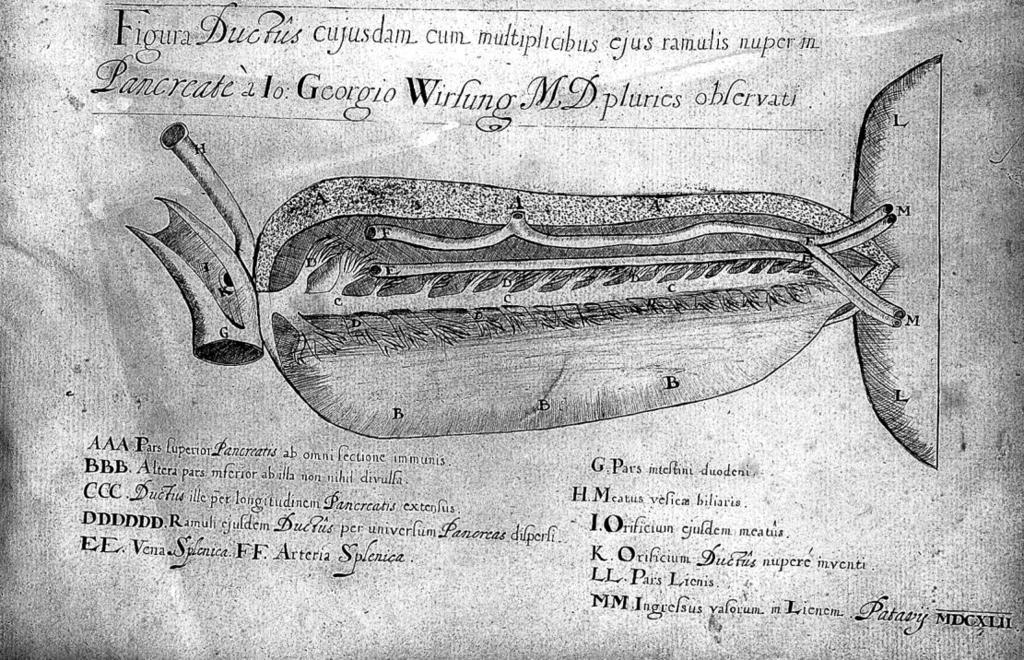 Figura Ductûs cujusdam cum multiplicibus ejus ramulis nuper in
Pancreate à Io: Georgio Wirsung M.D pluries observati
H
L
A
A
A
M
F
F
I
D
E
E
K
D
D
C
C
C
G
D
D
M
B
B
B
L
AAA Pars superior Pancreatis ab omni sectione immunis.
BBB. Altera pars inferior ab illa non nihil divulsa.
CCC Ductus ille per longitudinem Pancreatis extensus.
DDDDDD. Ramuli ejusdem Ductûs per universum Pancreas dispersi.
EE. Vena Splenica. FF. Arteria Splenica.
G. Pars intestini duodeni.
H. Meatus vesicæ biliaris.
I. Orificium ejusdem meatûs.
K. Orificium Ductûs nuperé inventi.
LL. Pars Lienis.
MM. Ingressus vasorum in Lienem. Patavij MDCXLII